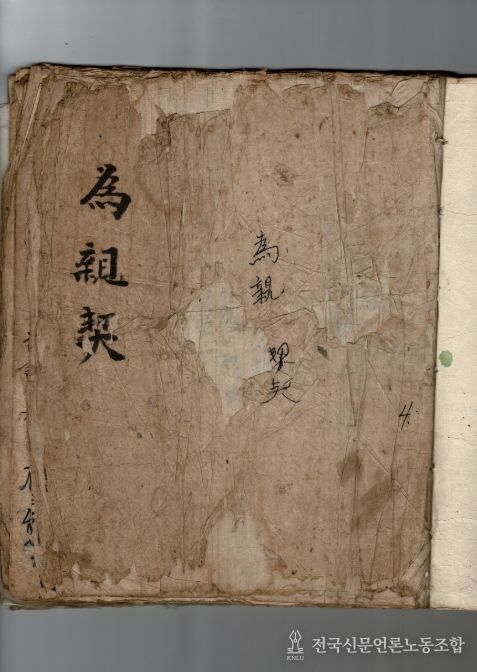 為親契
為親契
4.
전국신문언론노동조합
KNLU